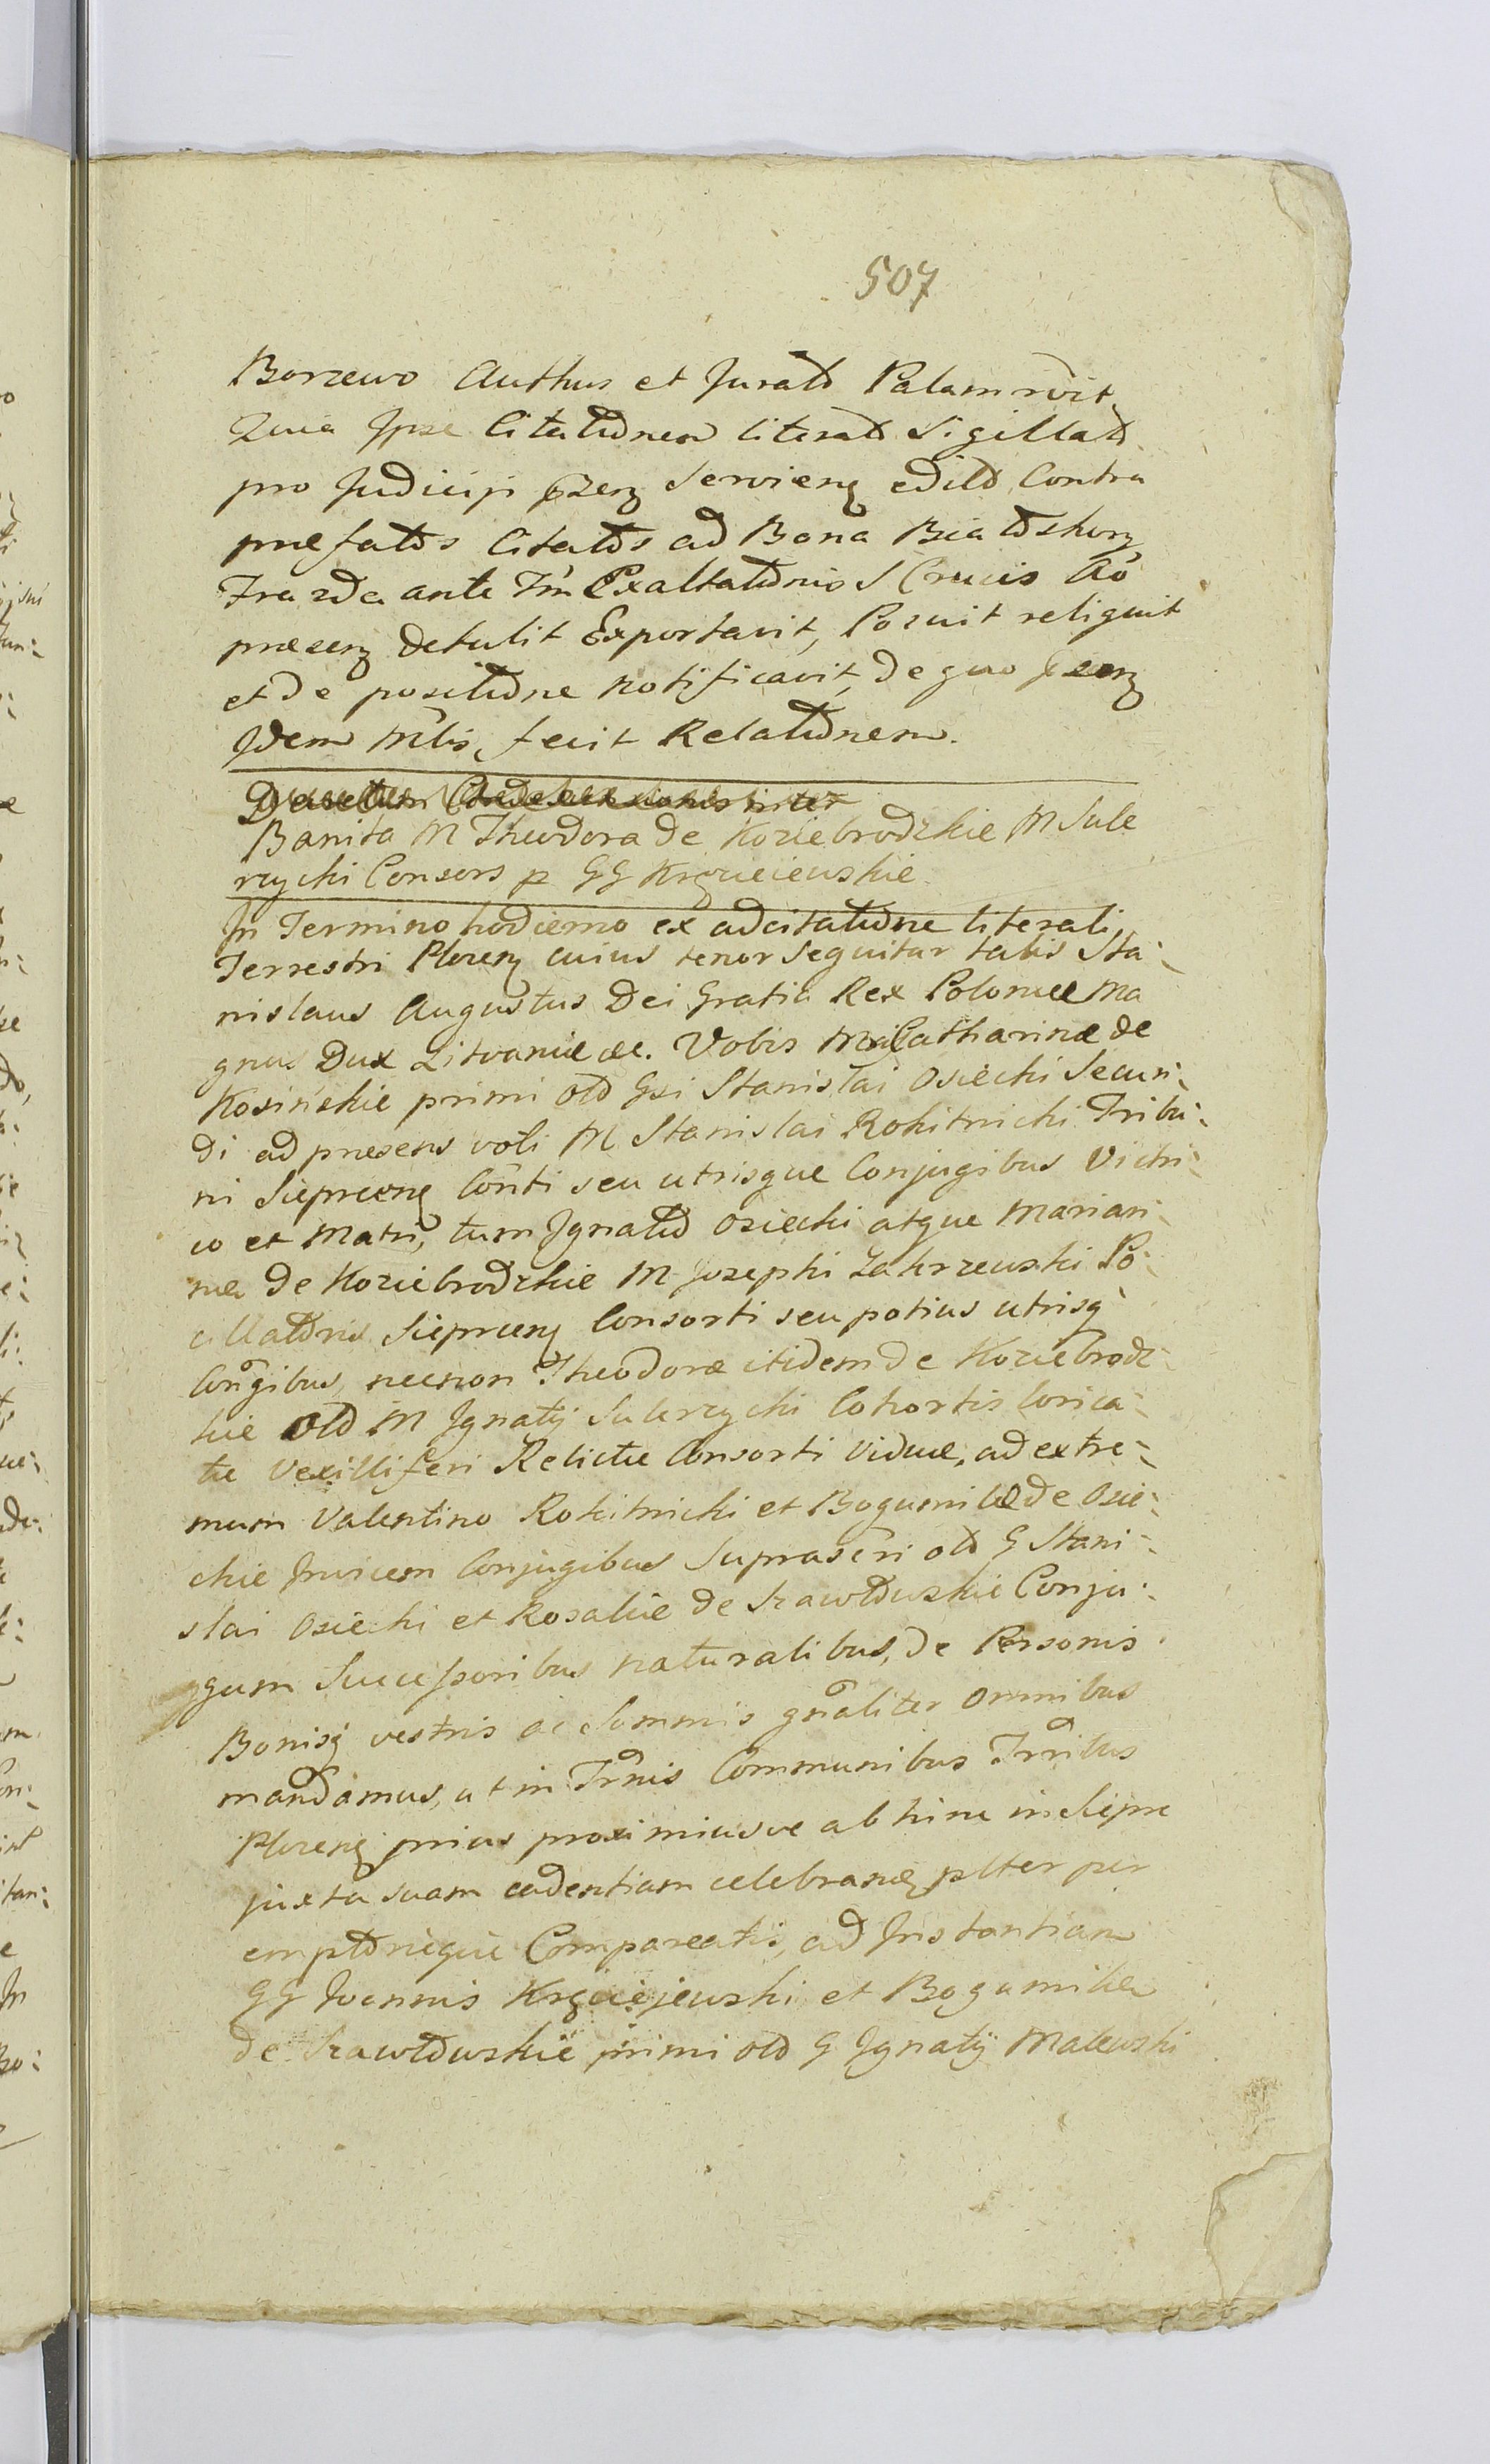 507
Borzewo Authus et Juratō Palam rvit
Quia Jpse Citatiōnem literatō Sigillatō
pro Judicijs pZenꝫ Servienꝫ editō Contra
præfatōs Citatōs ad Bona Białoskorꝫ
Fra 2da ante Fm̃ Exaltatiōnis S Crucis Aõ
præsenꝫ detulit Exportavit, Posuit reliquit
et de positiōne notificavit, de quo
Jdem Mtlis, fecit Relatiōnem.
Banita M Theodora de Koziebrodzkie M Sule
rzycki Consors p GG Krzęciewskie
Jn Termino hodierno ex adcitatiōne literali
Terrestri Plocenꝫ cuius tenor sequitur talis Sta-
nislaus Augustus Dei Gratia Rex Poloniæ Ma
gnus Dux Litvaniæ &c. Vobis M Catharinæ de
Kosińskie primi otō Gsi Stanislai Osiecki Secun-
di ad præsens voti M Stanislai Rokitnicki Tribu-
ni Sieprcenꝫ Cõnti seu utrisque Conjugibus Victri-
co et Matri, tum Jgnatiō Osiecki atque Marian-
næ de Koziebrodzkie M Josephi Zakrzewski Po-
cillatōris Sieprcenꝫ Consorti seu potius utrisq̃
Con̄gibus, necnon Theodoræ itidem de Koziebrodz-
kie otō M Jgnatij Sulerzycki Cohortis lorica-
tæ Vexilliferi Relictæ Consorti Viduæ, ad extre-
mum Valentino Rokitnicki et Bogumilæ de Osie-
ckie Jnvicem Conjugibus Suprascri otō G Stani-
slai Osiecki et Rosaliæ de Szawłowskie Conju-
ggum Successoribus naturalibus, de Personis
Bonisq̃ vestris ac Summis gñaliter omnibus
mandamus, ut in Tr̃nis Communibus Tr̃ribus
Plocenꝫ prius proximiusve ab hinc in Siepre
juxta suam cadentiam celebranꝫ plter per
emptōrieque Compareatis, ad Jnstantiam
GG Joannis Krzęciejewski et Bogumilæ
de Szawłowskie primi otō G Jgnatij Malewski